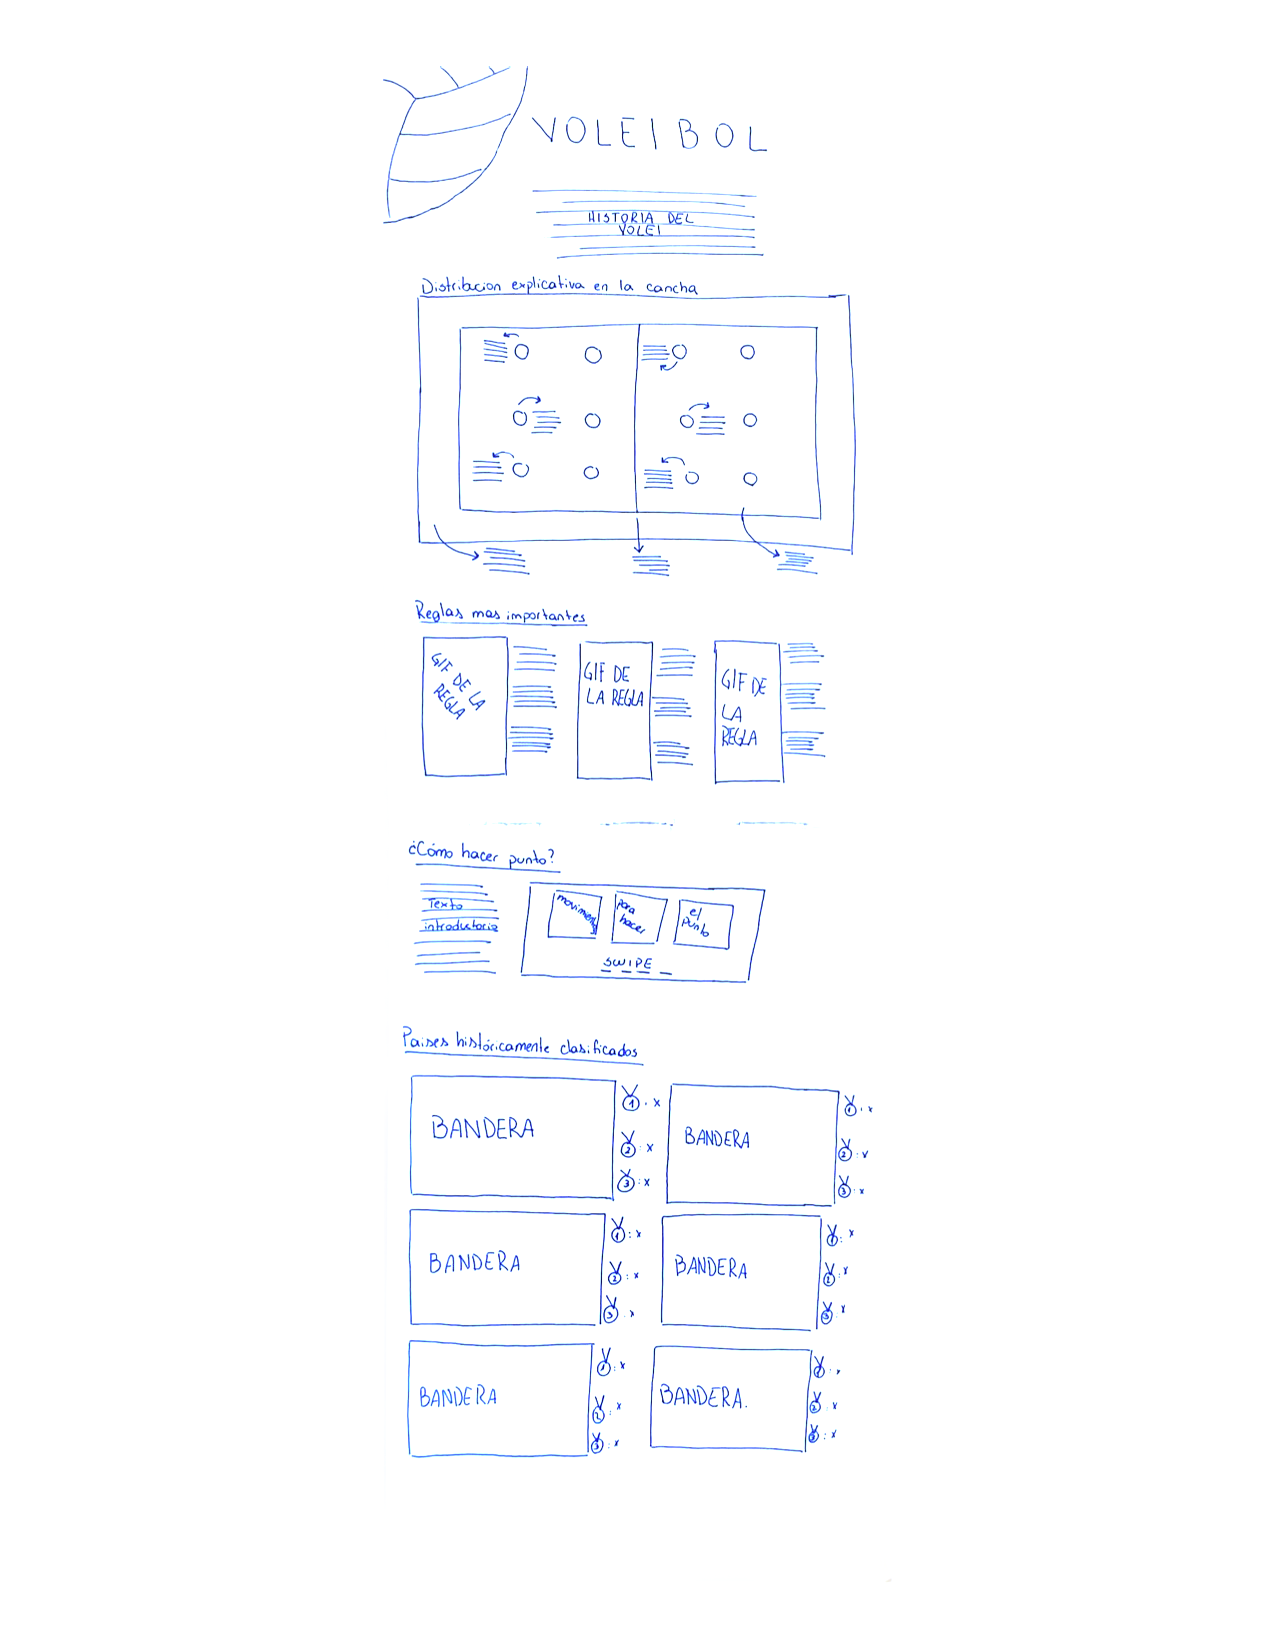 VOLEIBOL
HISTORIA DEL
VOLEI
Distribacion explicativa en la cancha
Reglas mas importantes
GIF DE LA
REGLA
GIF DE
LA REGLA
GIF DE
LA
REGLA
¿Cómo hacer punto?
Texto
introductorio
movimiento
para
hacer
el
punto
SWIPE
Paises históricamente clasificados
BANDERA
1 . x
2 . x
3 : x
BANDERA
1 . x
2 . x
3 . x
BANDERA
1 : x
2 : x
3 . x
BANDERA
1 : x
2 : x
3 x
BANDERA
1 : x
2 : x
3 : x
BANDERA.
1 . x
2 . x
3 : x